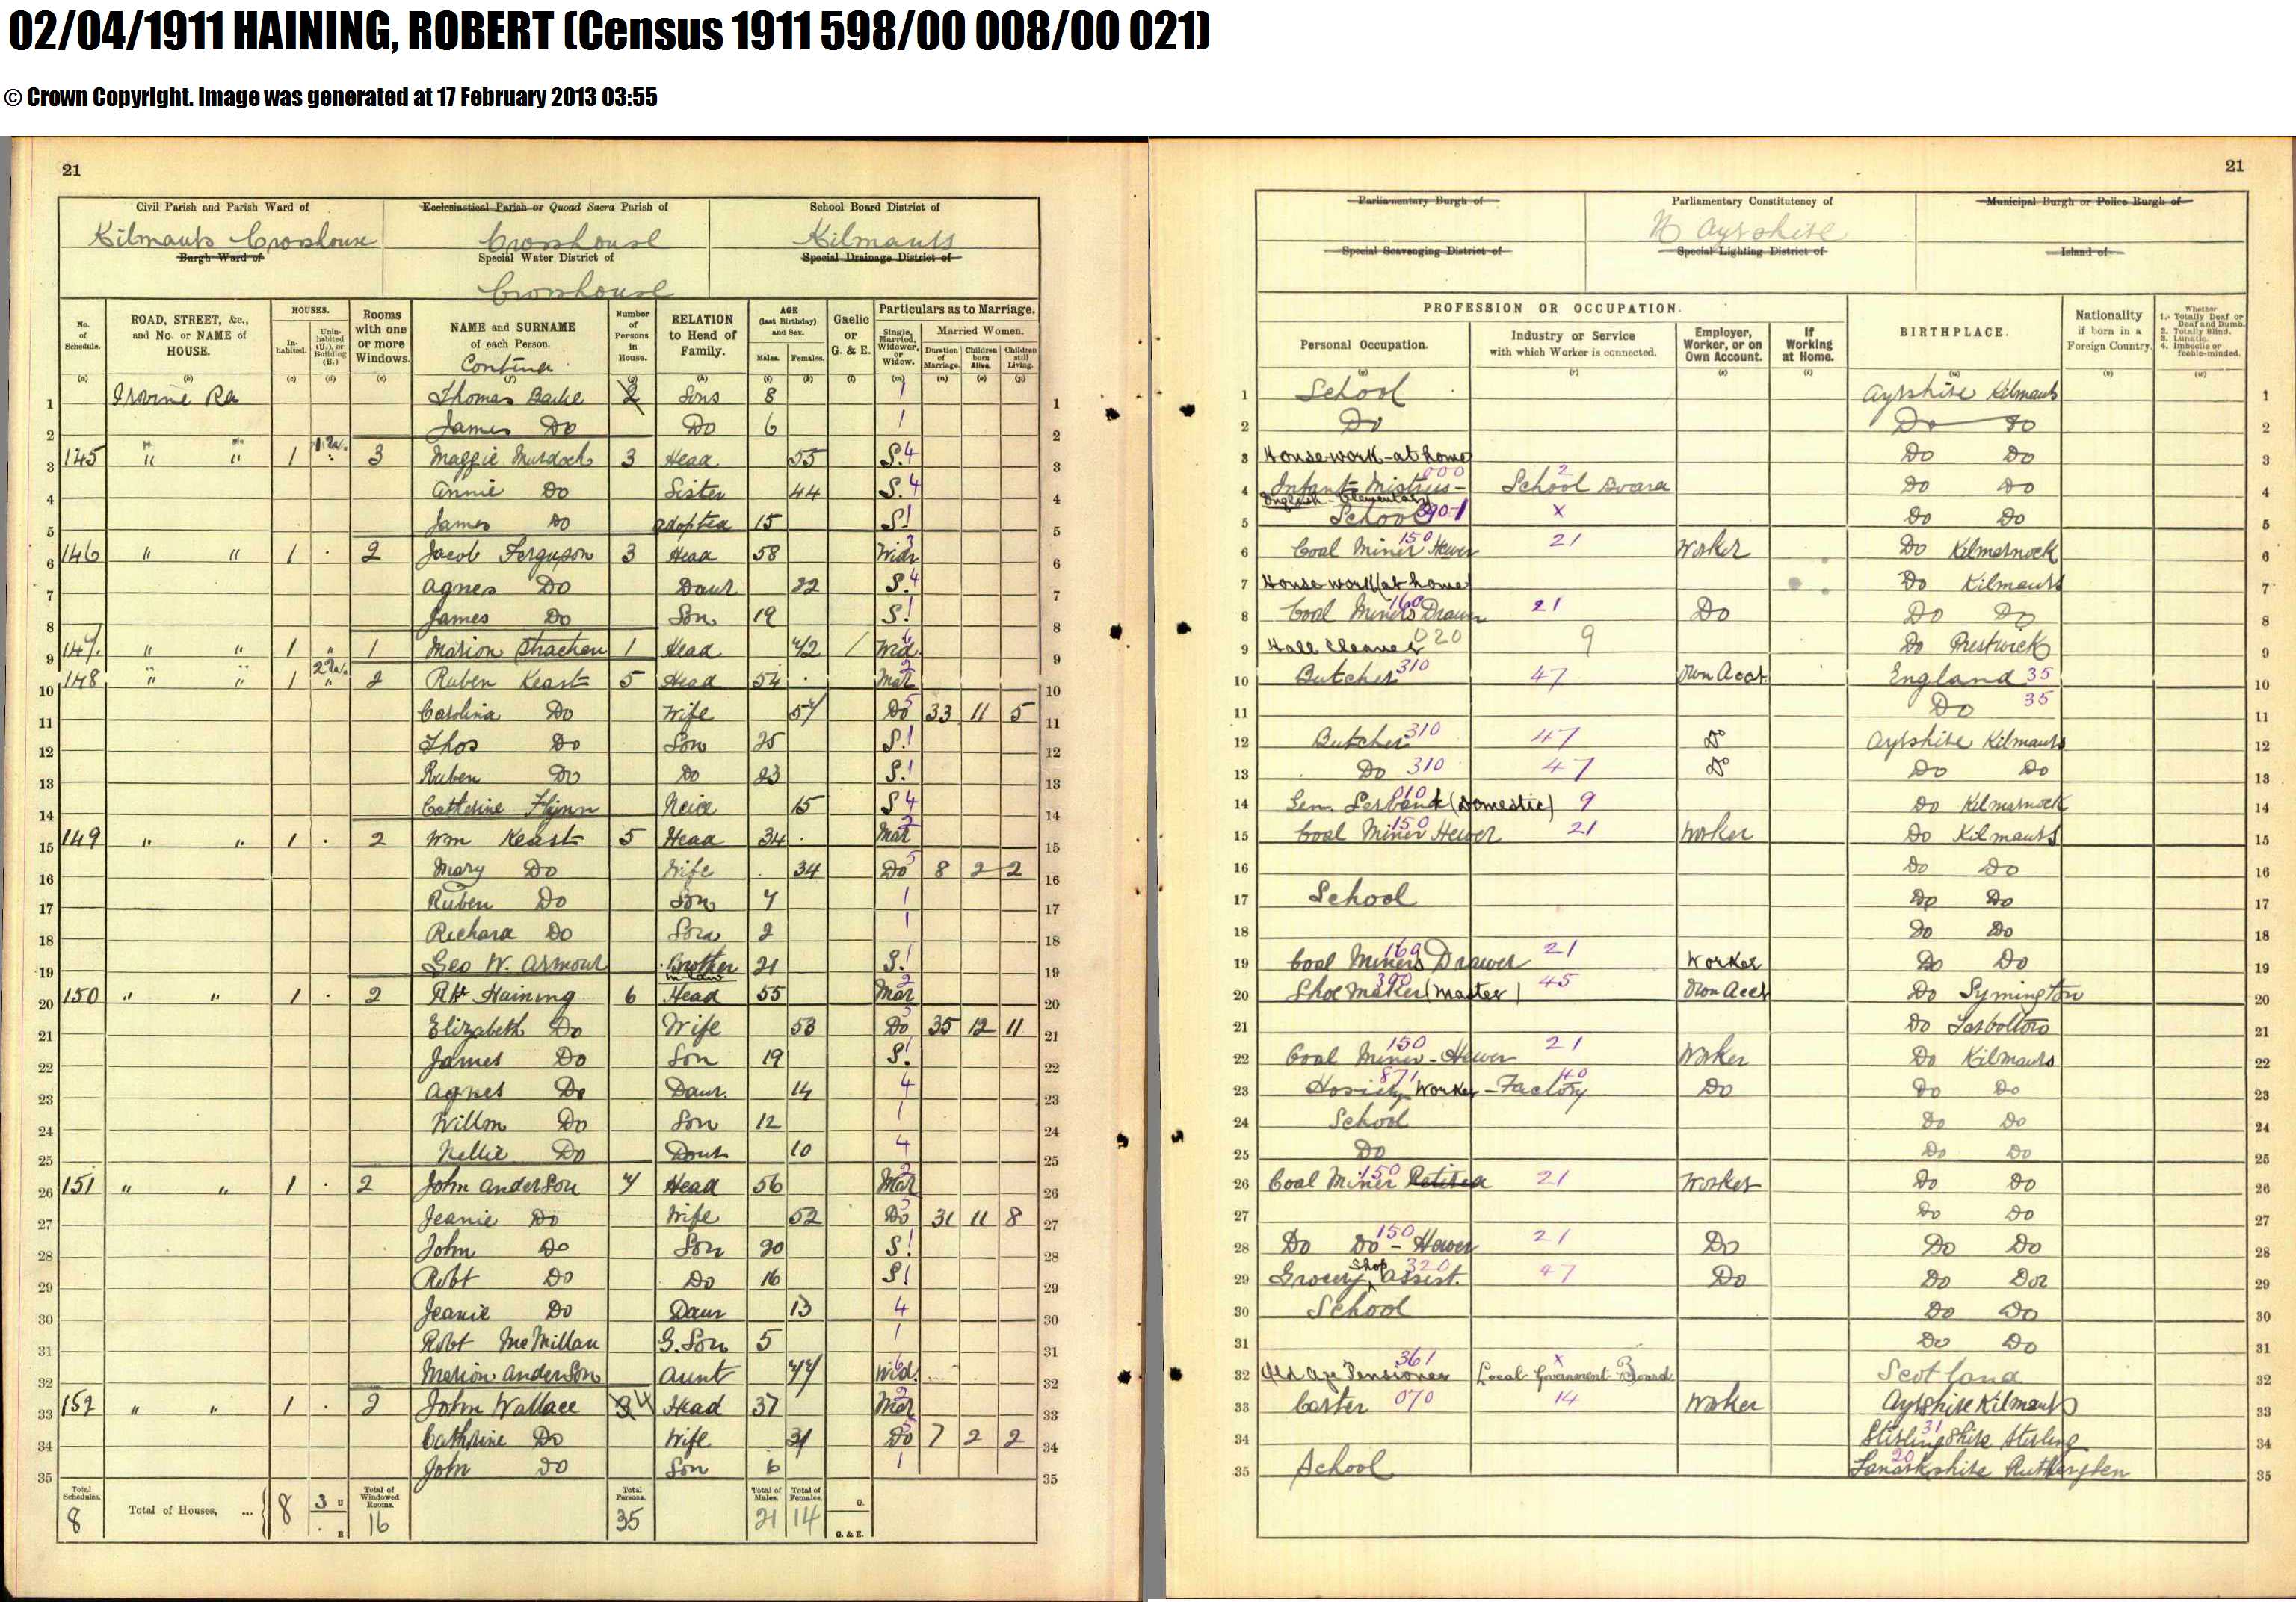 02/04/1911 HAINING, ROBERT (Census 1911 598/00 008/00 021)
© Crown Copyright. Image was generated at 17 February 2013 03:55
21
Civil Parish and Parish Ward of
Kilmaurs Crosshouse
Ecclesiastical Parish or Quoad Sacra Parish of
Crosshouse
School Board District of
Kilmaurs
Burgh Ward of
Special Water District of
Crosshouse
Special Drainage District of
No. of Schedule.
ROAD, STREET, &c., and No. or NAME of HOUSE.
HOUSES.
In-habited.
Unin-habited (U.), or Building (B.)
Rooms with one or more Windows.
NAME and SURNAME of each Person.
Contind
Number of Persons in House.
RELATION to Head of Family.
AGE (last Birthday) and Sex.
Males. Females.
Gaelic or G. & E.
Particulars as to Marriage.
Single, Married, Widower, or Widow.
Married Women.
Duration of Marriage. Children born Alive. Children still Living.
(a) (b) (c) (d) (e) (f) (g) (h) (i) (k) (l) (m) (n) (o) (p)
1 Irvine Rd Thomas 2 Sons 8 1 1
2 James Do Do 6 1 2
3 145 " " 1 1 U. 3 Maggie Murdoch 3 Head 55 S. 4 3
4 Annie Do Sister 44 S. 4 4
5 James Do adopted 15 S. 1 5
6 146 " " 1 . 2 Jacob Ferguson 3 Head 58 Widr 3 6
7 Agnes Do Daur 22 S. 4 7
8 James Do Son 19 S. 1 8
9 147 " " 1 " 1 Marion Strachan 1 Head 42 / Wid. 6 9
10 148 " " 1 2 U. 2 Ruben Keast 5 Head 54 Mar 2 10
11 Carolina Do Wife 57 Do 5 33 11 5 11
12 Thos Do Son 25 S. 1 12
13 Ruben Do Do 23 S. 1 13
14 Catherine Flynn Neice 15 S 4 14
15 149 " " 1 . 2 Wm Keast 5 Head 34 Mar 2 15
16 Mary Do Wife 34 Do 5 8 2 2 16
17 Ruben Do Son 7 1 17
18 Richard Do Son 2 1 18
19 Geo W. Armour Brother in law 21 S. 1 19
20 150 " " 1 . 2 Rt Haining 6 Head 55 Mar 2 20
21 Elizabeth Do Wife 53 Do 5 35 12 11 21
22 James Do Son 19 S. 1 22
23 Agnes Do Daur. 14 4 23
24 Willm Do Son 12 1 24
25 Nellie Do Daur 10 4 25
26 151 " " 1 . 2 John Anderson 7 Head 56 Mar 2 26
27 Jeanie Do Wife 52 Do 5 31 11 8 27
28 John Do Son 20 S 1 28
29 Robt Do Do 16 S 1 29
30 Jeanie Do Daur 13 4 30
31 Robt McMillan G. Son 5 1 31
32 Marion Anderson Aunt 77 Wid. 6 32
33 152 " " 1 . 2 John Wallace 3 4 Head 37 Mar 2 33
34 Cathrine Do Wife 31 Do 5 7 2 2 34
35 John Do Son 6 1 35
Total Schedules. 8
Total of Houses, ... 8 3 U . B
Total of Windowed Rooms. 16
Total Persons. 35
Total of Males. 21
Total of Females. 14
G.
G. & E.
21
Parliamentary Burgh of
Parliamentary Constitutency of
N Ayrshire
Municipal Burgh or Police Burgh of
Special Scavenging District of
Special Lighting District of
Island of
PROFESSION OR OCCUPATION.
Personal Occupation.
Industry or Service with which Worker is connected.
Employer, Worker, or on Own Account.
If Working at Home.
BIRTHPLACE.
Nationality if born in a Foreign Country.
Whether 1. Totally Deaf or Deaf and Dumb. 2. Totally Blind. 3. Lunatic. 4. Imbecile or feeble-minded.
(q) (r) (s) (t) (u) (v) (w)
1 School Ayrshire Kilmaurs 1
2 Do Do Do 2
3 House work - at home Do Do 3
4 Infant Mistress - 000 School Board 2 Do Do 4
5 English - Elementary School 390-1 x Do Do 5
6 Coal Miner Hewer 150 21 Worker Do Kilmarnock 6
7 House work (at home) Do Kilmaurs 7
8 Coal Miners Drawer 160 21 Do Do Do 8
9 Hall Cleaner 020 9 Do Prestwick 9
10 Butcher 310 47 Own Acct. England 35 10
11 Do 35 11
12 Butcher 310 47 Do Ayrshire Kilmaurs 12
13 Do 310 47 Do Do Do 13
14 Gen. Servant (Domestic) 010 9 Do Kilmarnock 14
15 Coal Miner Hewer 150 21 Worker Do Kilmaurs 15
16 Do Do 16
17 School Do Do 17
18 Do Do 18
19 Coal Miners Drawer 160 21 Worker Do Do 19
20 Shoe Maker (Master) 390 45 Own Acct Do Symington 20
21 Do Tarbolton 21
22 Coal Miner - Hewer 150 21 Worker Do Kilmaurs 22
23 Hosiery Worker - Factory 871 40 Do Do Do 23
24 School Do Do 24
25 Do Do Do 25
26 Coal Miner Retired 150 21 Worker Do Do 26
27 Do Do 27
28 Do Do - Hewer 150 21 Do Do Do 28
29 Grocery Shop assist. 320 47 Do Do Do 29
30 School Do Do 30
31 Do Do 31
32 Old Age Pensioner 361 Local Government Board x Scotland 32
33 Carter 070 14 Worker Ayrshire Kilmaurs 33
34 Stirlingshire Sterling 31 34
35 School Lanarkshire Rutherglen 20 35